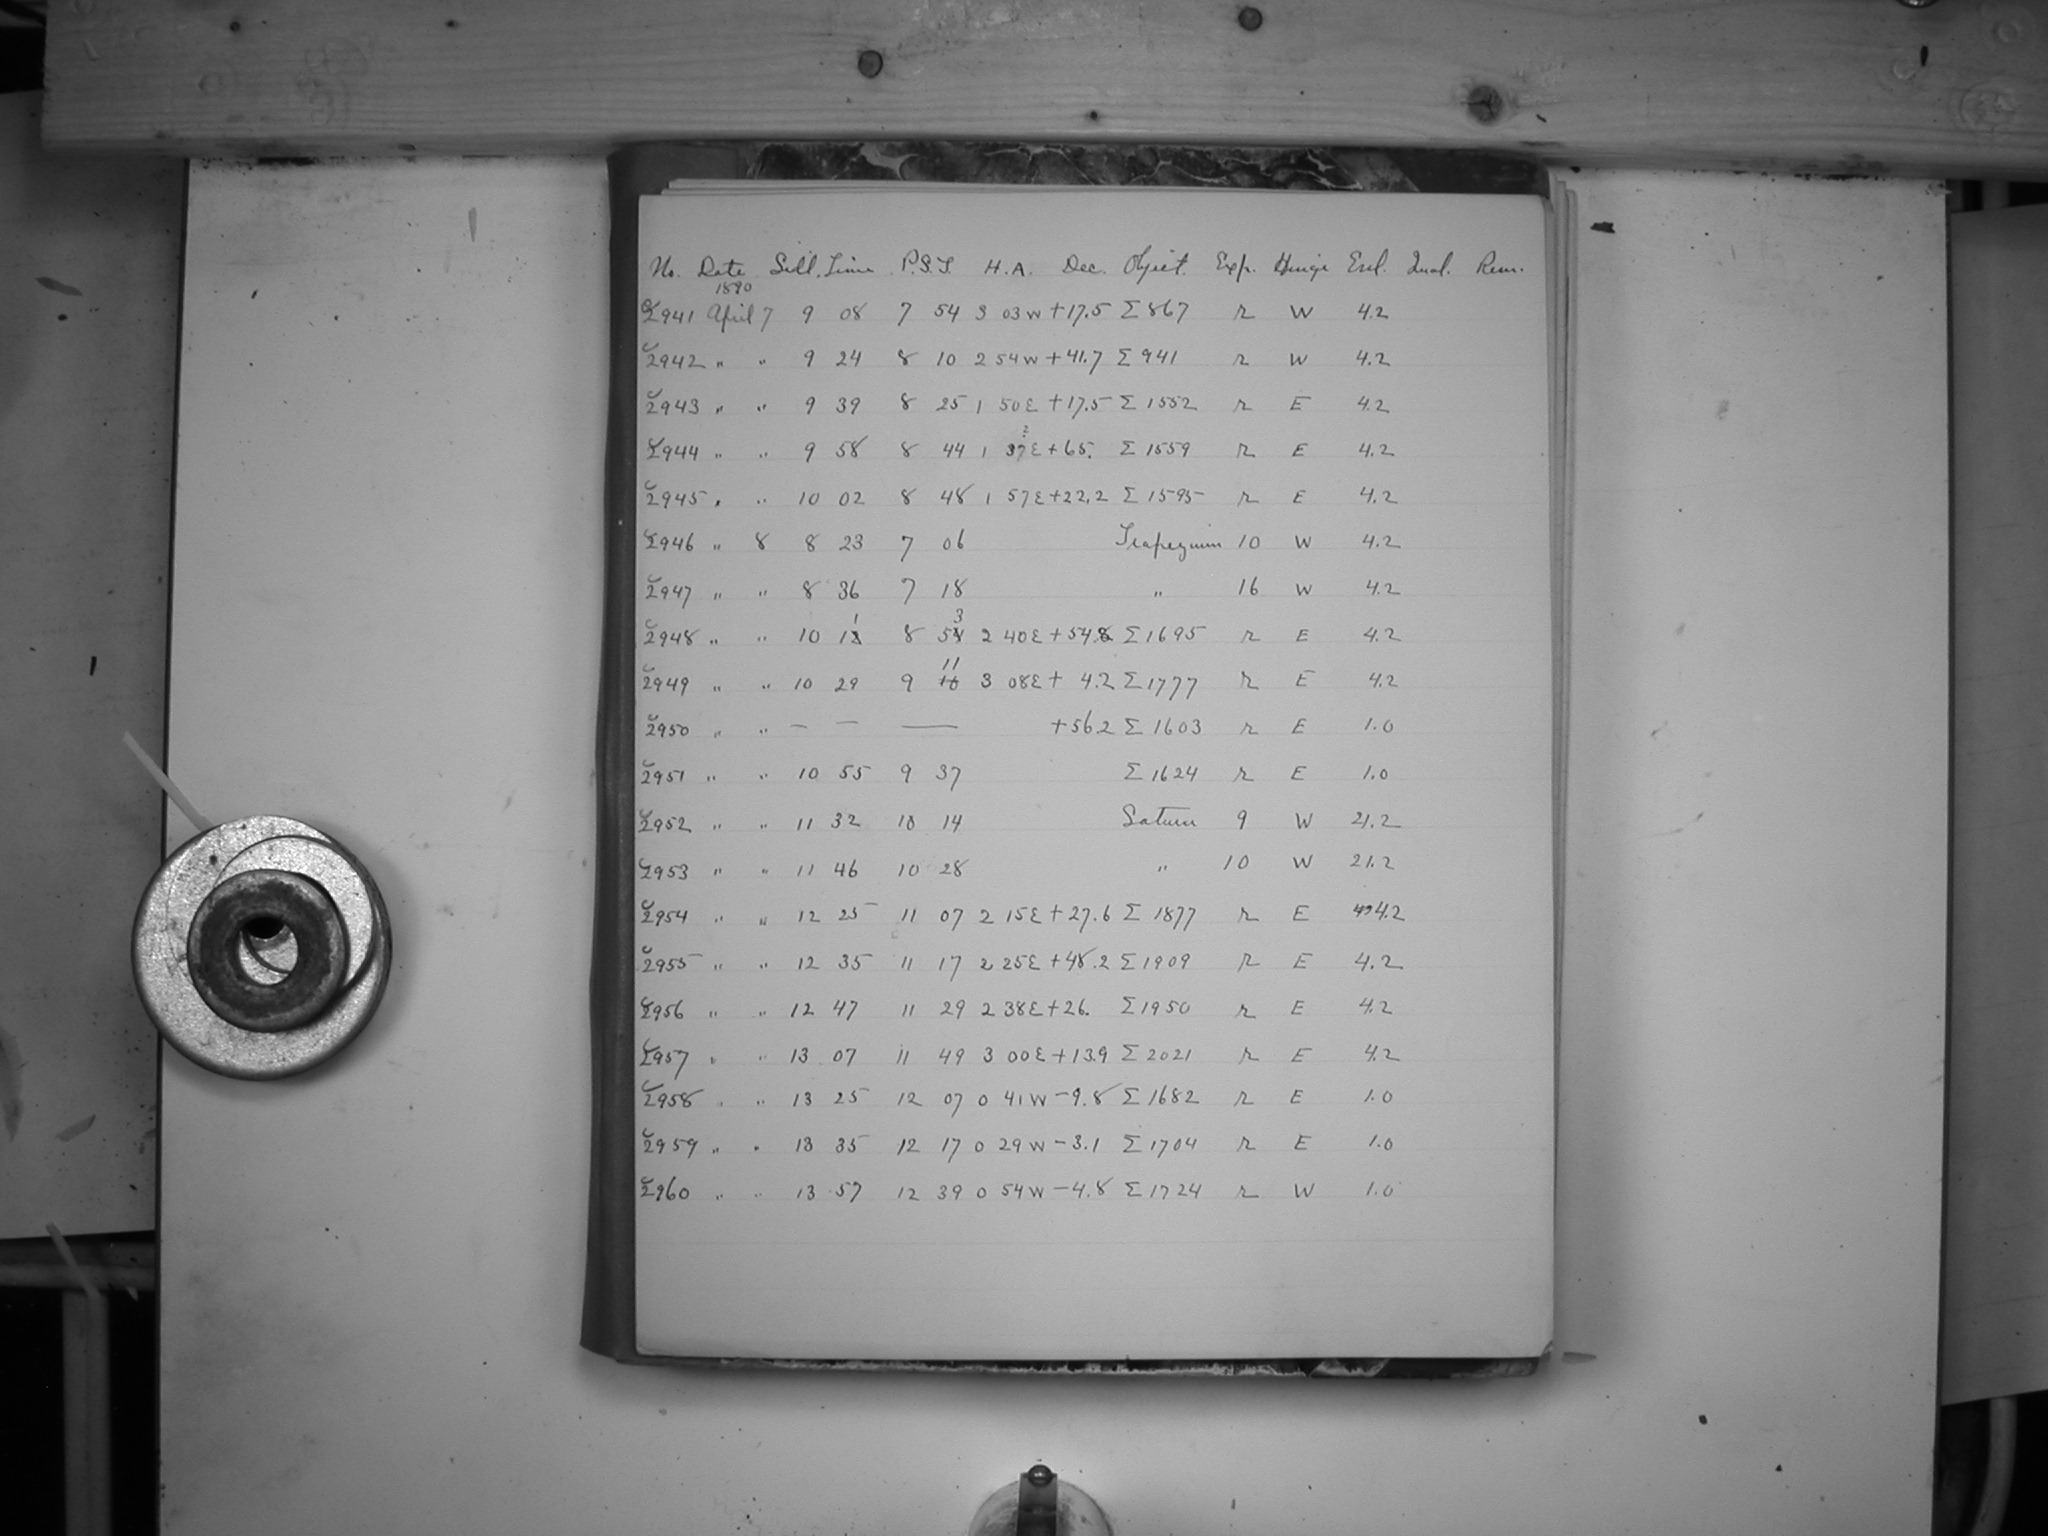 No. Date Sidl. Time P.S.T. H.A. Dec. Object. Exp. Hinge Encl. Qual. Rem.
1890
2941 April 7 9 08 7 54 3 03 W +17.5 Σ 867 r W 4.2
2942 " " 9 24 8 10 2 54 W +41.7 Σ 941 r W 4.2
2943 " " 9 39 8 25 1 50 E +17.5 Σ 1552 r E 4.2
2944 " " 9 58 8 44 1 37 E +65. Σ 1559 r E 4.2
2945 " " 10 02 8 48 1 57 E +22.2 Σ 1595 r E 4.2
2946 " 8 8 23 7 06 Trapezium 10 W 4.2
2947 " " 8 36 7 18 " 16 W 4.2
2948 " " 10 11 8 53 2 40 E +54.8 Σ 1695 r E 4.2
2949 " " 10 29 9 11 3 08 E + 4.2 Σ 1777 r E 4.2
2950 " " — — — +56.2 Σ 1603 r E 1.0
2951 " " 10 55 9 37 Σ 1624 r E 1.0
2952 " " 11 32 10 14 Saturn 9 W 21.2
2953 " " 11 46 10 28 " 10 W 21.2
2954 " " 12 25 11 07 2 15 E +27.6 Σ 1877 r E 4.2
2955 " " 12 35 11 17 2 25 E +48.2 Σ 1909 r E 4.2
2956 " " 12 47 11 29 2 38 E +26. Σ 1950 r E 4.2
2957 " " 13 07 11 49 3 00 E +13.9 Σ 2021 r E 4.2
2958 " " 13 25 12 07 0 41 W -9.8 Σ 1682 r E 1.0
2959 " " 13 35 12 17 0 29 W -3.1 Σ 1704 r E 1.0
2960 " " 13 57 12 39 0 54 W -4.8 Σ 1724 r W 1.0